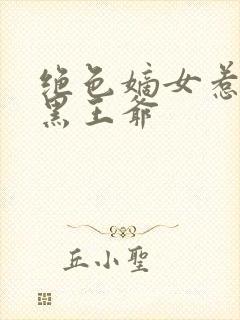 绝色嫡女惹
黑王爷
丘小聖